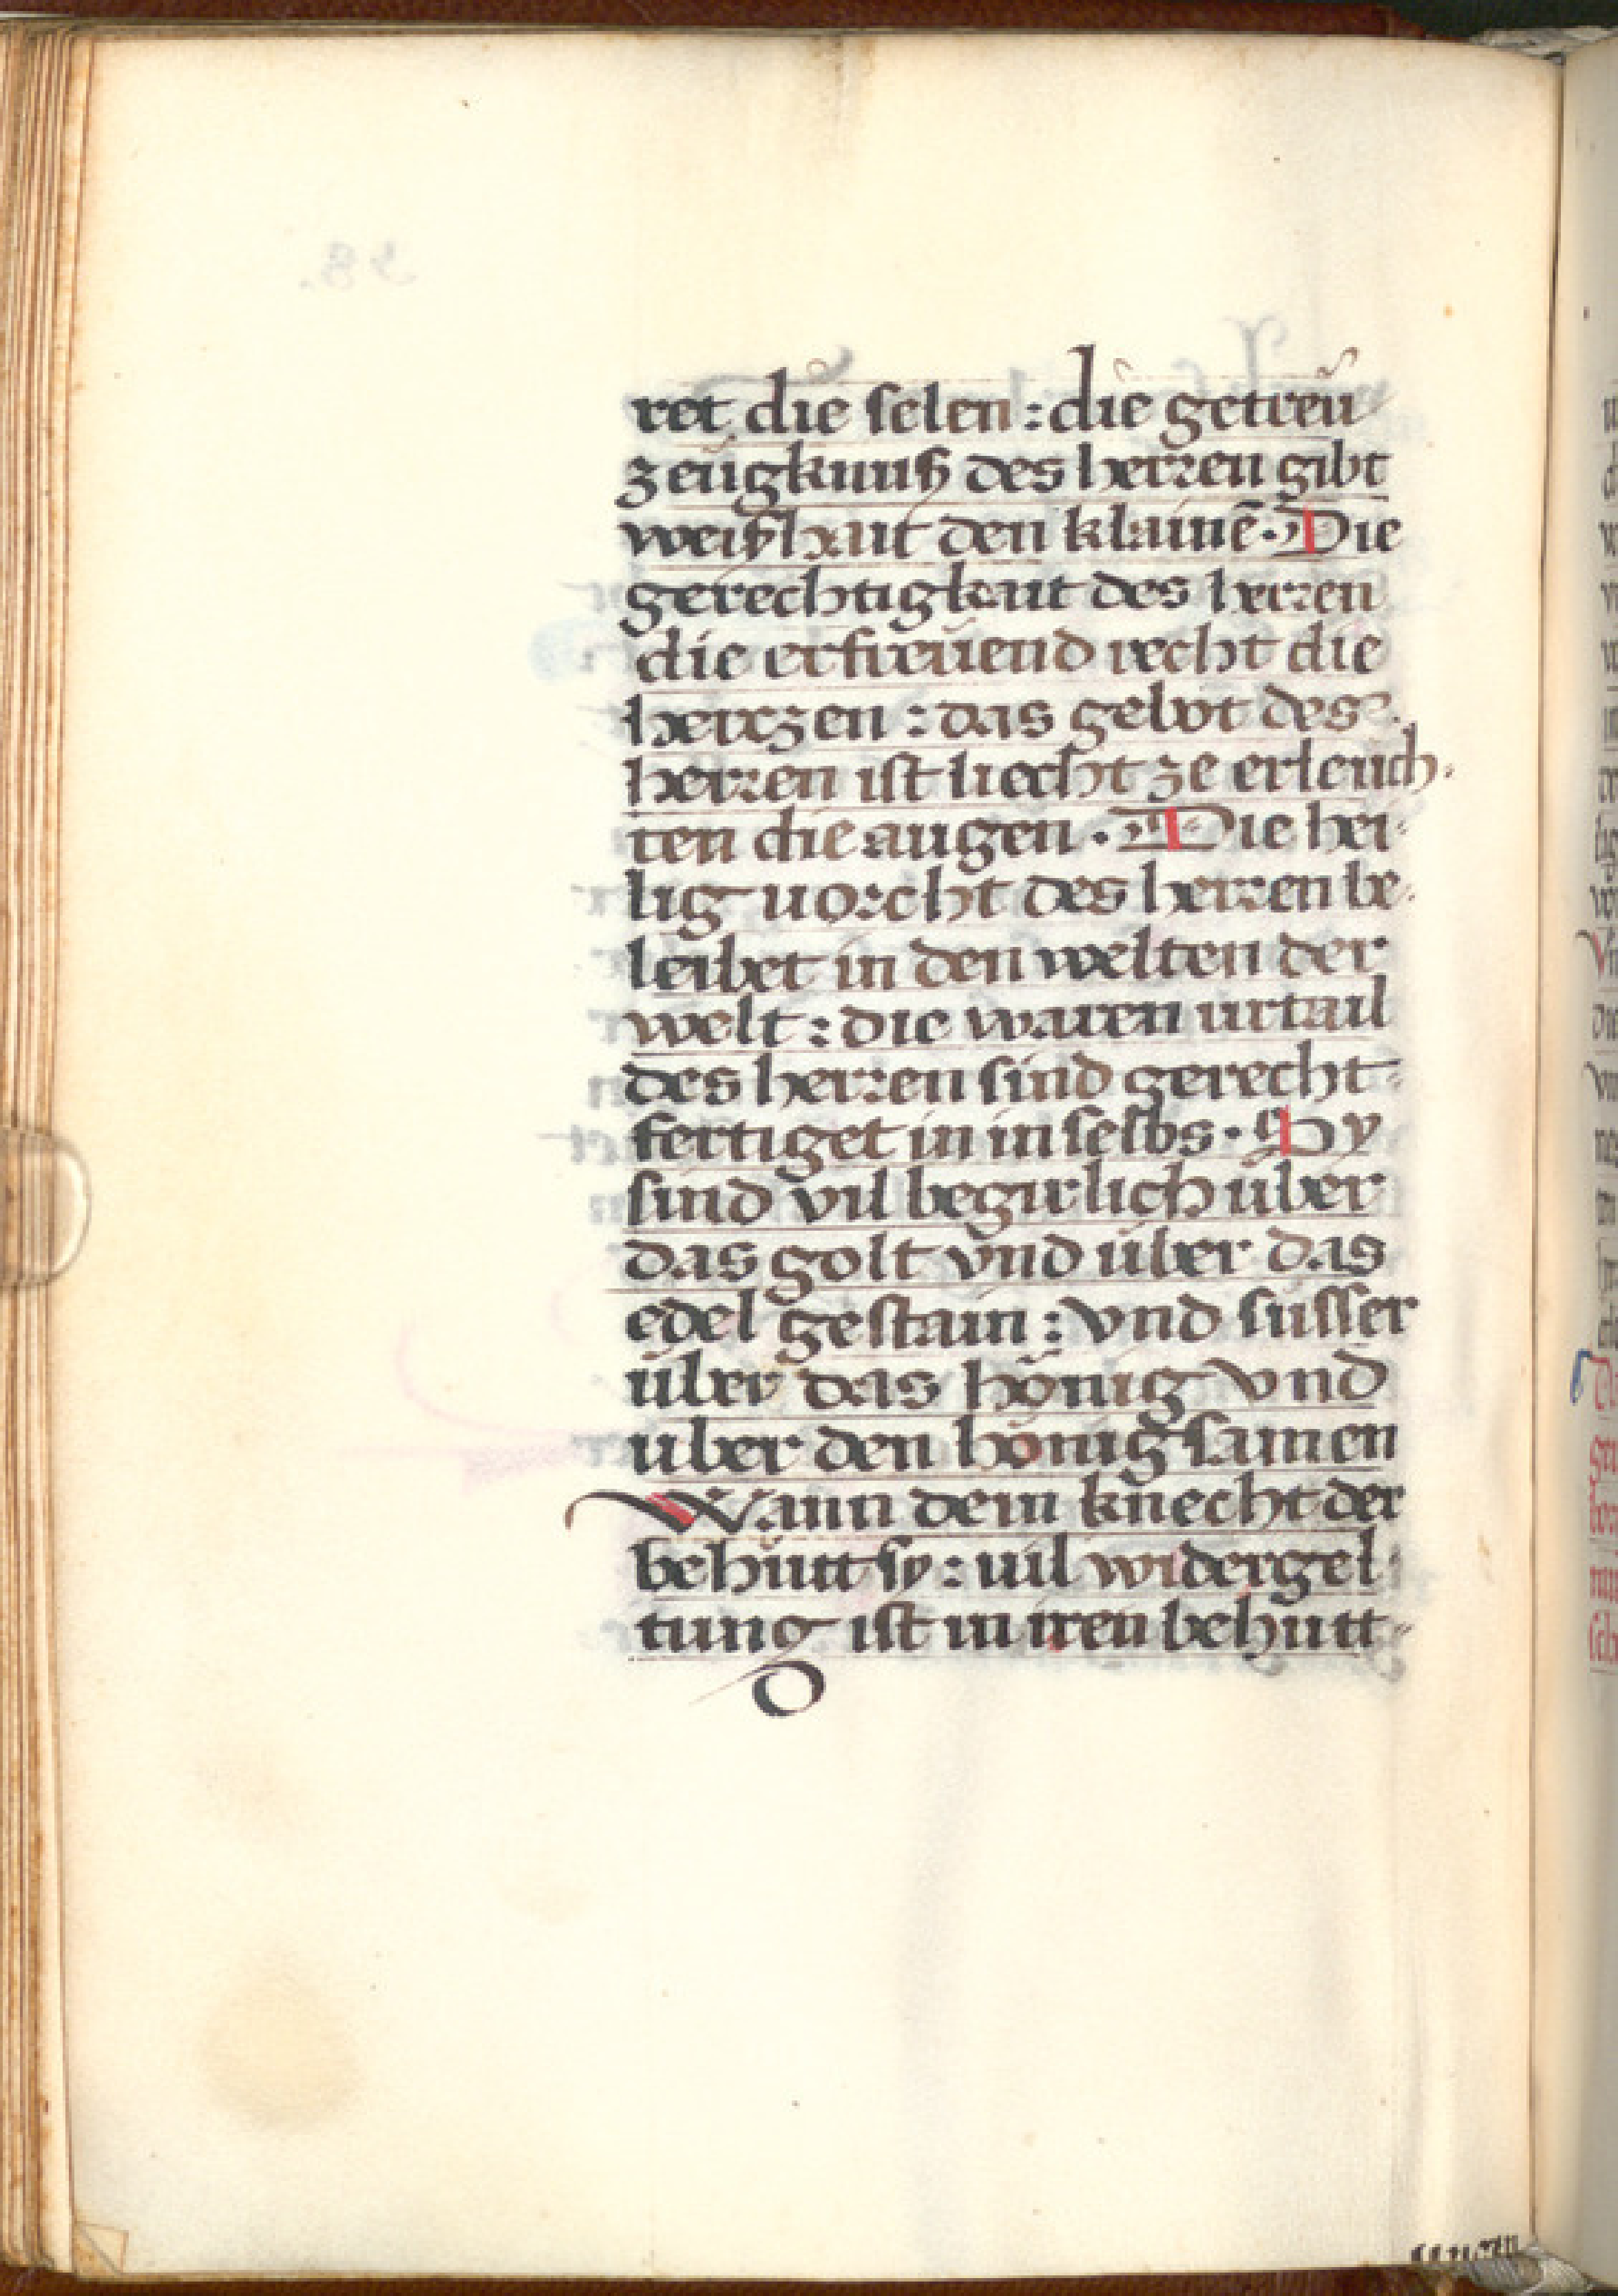 ret die selen : die getreü
zeügknuß des herren gibt
weißhait den klainē · Die
gerechtigkait des herren
die erfreüend recht die
hertzen : das gebot des
herren ist liecht ze erleuch-
ten die augen · Die hei-
lig uorcht des herren be-
leibet in den welten der
welt : die waren urtail
des herren sind gerecht-
fertiget in in selbs · Sy
sind vil begirlich über
das golt vnd über das
edel gestain : vnd süsser
über das hönig vnd
über den hönigsamen
Wann dein knecht der
behütt sy : uil widergel-
tung ist in iren behütt-